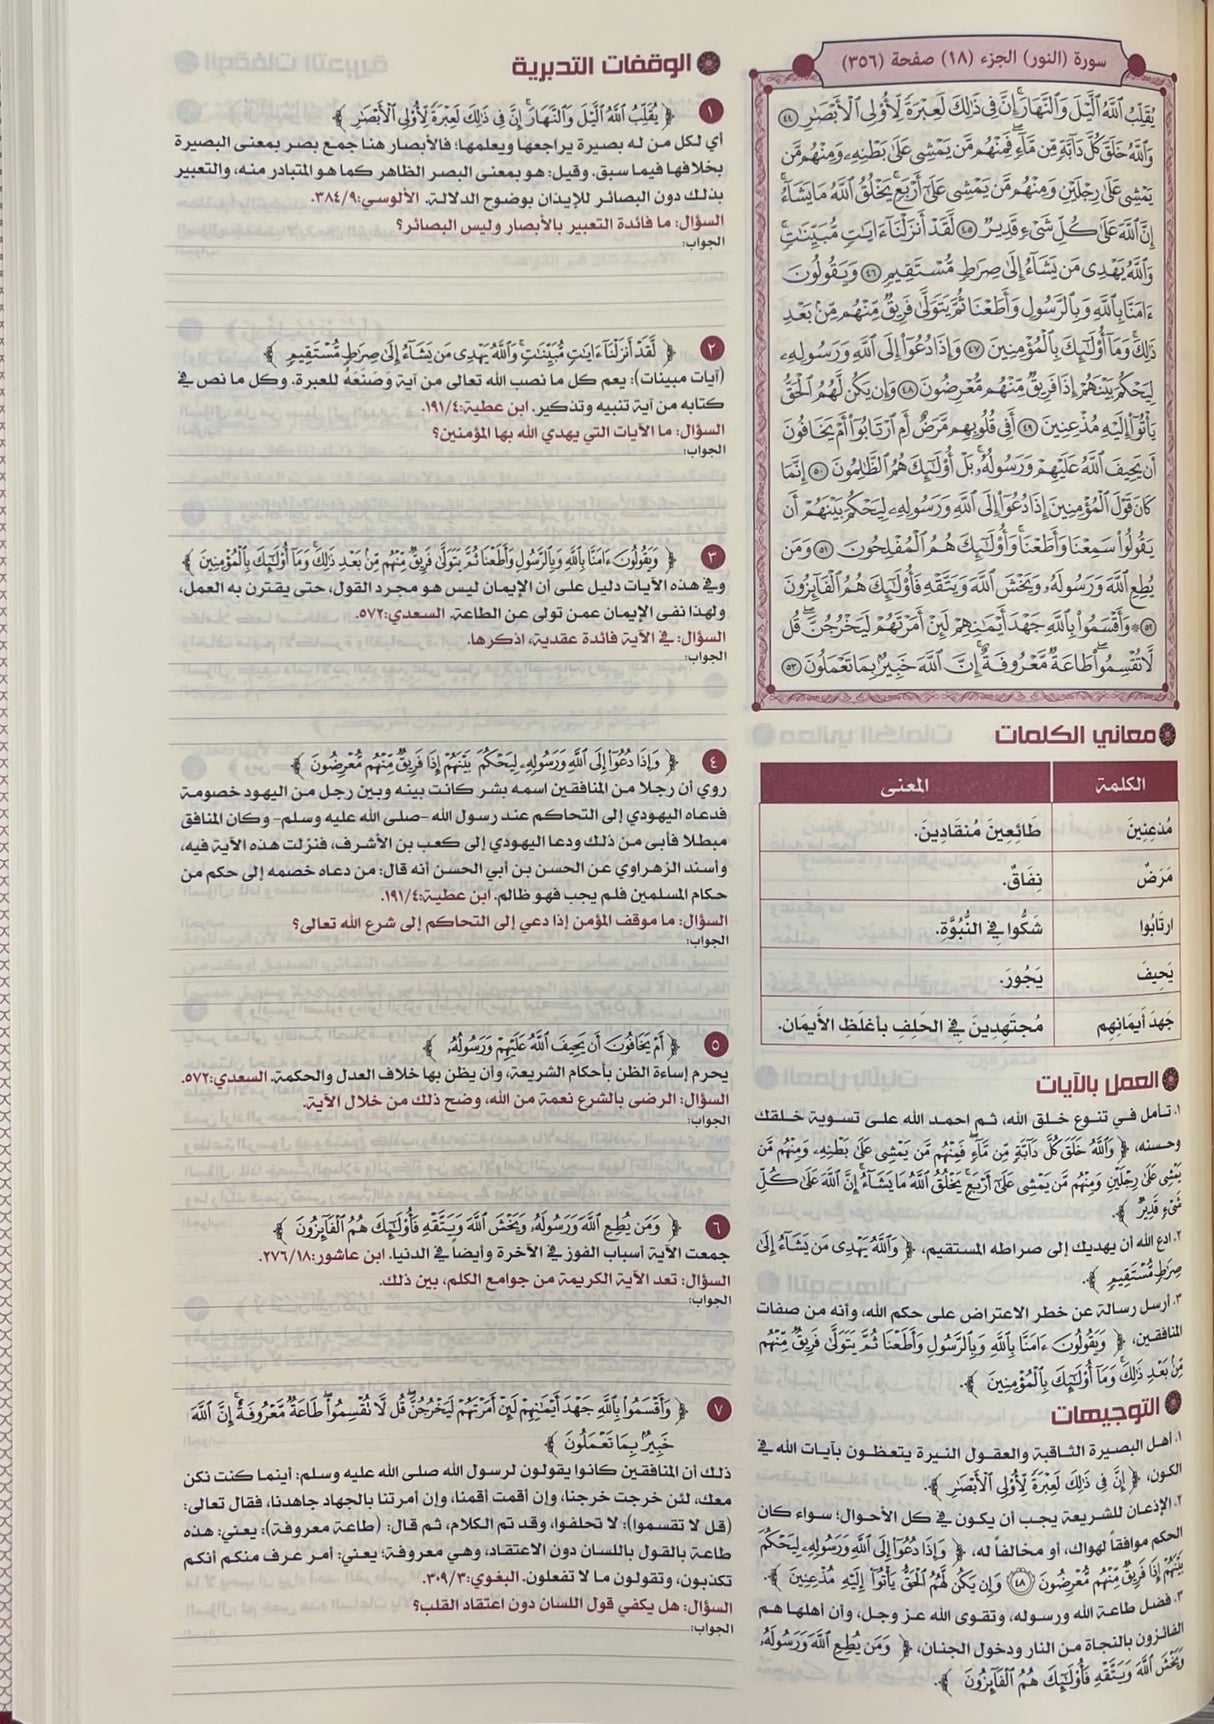 سورة (النور) الجزء (١٨) صفحة (٣٥٦)
يُقَلِّبُ ٱللَّهُ ٱلَّيۡلَ وَٱلنَّهَارَۚ إِنَّ فِي ذَٰلِكَ لَعِبۡرَةٗ لِّأُوْلِي ٱلۡأَبۡصَٰرِ ٤٤
وَٱللَّهُ خَلَقَ كُلَّ دَآبَّةٖ مِّن مَّآءٖۖ فَمِنۡهُم مَّن يَمۡشِي عَلَىٰ بَطۡنِهِۦ وَمِنۡهُم مَّن
يَمۡشِي عَلَىٰ رِجۡلَيۡنِ وَمِنۡهُم مَّن يَمۡشِي عَلَىٰٓ أَرۡبَعٖۚ يَخۡلُقُ ٱللَّهُ مَا يَشَآءُۚ
إِنَّ ٱللَّهَ عَلَىٰ كُلِّ شَيۡءٖ قَدِيرٞ ٤٥ لَّقَدۡ أَنزَلۡنَآ ءَايَٰتٖ مُّبَيِّنَٰتٖۚ
وَٱللَّهُ يَهۡدِي مَن يَشَآءُ إِلَىٰ صِرَٰطٖ مُّسۡتَقِيمٖ ٤٦ وَيَقُولُونَ
ءَامَنَّا بِٱللَّهِ وَبِٱلرَّسُولِ وَأَطَعۡنَا ثُمَّ يَتَوَلَّىٰ فَرِيقٞ مِّنۡهُم مِّنۢ بَعۡدِ
ذَٰلِكَۚ وَمَآ أُوْلَٰٓئِكَ بِٱلۡمُؤۡمِنِينَ ٤٧ وَإِذَا دُعُوٓاْ إِلَى ٱللَّهِ وَرَسُولِهِۦ
لِيَحۡكُمَ بَيۡنَهُمۡ إِذَا فَرِيقٞ مِّنۡهُم مُّعۡرِضُونَ ٤٨ وَإِن يَكُن لَّهُمُ ٱلۡحَقُّ
يَأۡتُوٓاْ إِلَيۡهِ مُذۡعِنِينَ ٤٩ أَفِي قُلُوبِهِم مَّرَضٌ أَمِ ٱرۡتَابُوٓاْ أَمۡ يَخَافُونَ
أَن يَحِيفَ ٱللَّهُ عَلَيۡهِمۡ وَرَسُولُهُۥۚ بَلۡ أُوْلَٰٓئِكَ هُمُ ٱلظَّٰلِمُونَ ٥٠ إِنَّمَا
كَانَ قَوۡلَ ٱلۡمُؤۡمِنِينَ إِذَا دُعُوٓاْ إِلَى ٱللَّهِ وَرَسُولِهِۦ لِيَحۡكُمَ بَيۡنَهُمۡ أَن
يَقُولُواْ سَمِعۡنَا وَأَطَعۡنَاۚ وَأُوْلَٰٓئِكَ هُمُ ٱلۡمُفۡلِحُونَ ٥١ وَمَن
يُطِعِ ٱللَّهَ وَرَسُولَهُۥ وَيَخۡشَ ٱللَّهَ وَيَتَّقۡهِ فَأُوْلَٰٓئِكَ هُمُ ٱلۡفَآئِزُونَ
٥٢ ۞ وَأَقۡسَمُواْ بِٱللَّهِ جَهۡدَ أَيۡمَٰنِهِمۡ لَئِنۡ أَمَرۡتَهُمۡ لَيَخۡرُجُنَّۖ قُل
لَّا تُقۡسِمُواْۖ طَاعَةٞ مَّعۡرُوفَةٌۚ إِنَّ ٱللَّهَ خَبِيرُۢ بِمَا تَعۡمَلُونَ ٥٣
معاني الكلمات
الكلمة المعنى
مُذعِنِينَ طَائِعِينَ مُنقَادِينَ.
مَرَضٌ نِفَاقٌ.
ارتَابُوا شَكُّوا فِي النُّبُوَّةِ.
يَحِيفَ يَجُورَ.
جَهدَ أيمَانِهِم مُجتَهِدِينَ فِي الحَلِفِ بأغلَظِ الأَيمَانِ.
العمل بالآيات
١. تأمل في تنوع خلق الله، ثم احمد الله على تسوية خلقك
وحسنه، ﴿ وَٱللَّهُ خَلَقَ كُلَّ دَآبَّةٖ مِّن مَّآءٖۖ فَمِنۡهُم مَّن يَمۡشِي عَلَىٰ بَطۡنِهِۦ وَمِنۡهُم مَّن
يَمۡشِي عَلَىٰ رِجۡلَيۡنِ وَمِنۡهُم مَّن يَمۡشِي عَلَىٰٓ أَرۡبَعٖۚ يَخۡلُقُ ٱللَّهُ مَا يَشَآءُۚ إِنَّ ٱللَّهَ عَلَىٰ كُلِّ
شَيۡءٖ قَدِيرٞ ﴾.
٢. ادع الله أن يهديك إلى صراطه المستقيم، ﴿ وَٱللَّهُ يَهۡدِي مَن يَشَآءُ إِلَىٰ
صِرَٰطٖ مُّسۡتَقِيمٖ ﴾.
٣. أرسل رسالة عن خطر الاعتراض على حكم الله، وأنه من صفات
المنافقين، ﴿ وَيَقُولُونَ ءَامَنَّا بِٱللَّهِ وَبِٱلرَّسُولِ وَأَطَعۡنَا ثُمَّ يَتَوَلَّىٰ فَرِيقٞ مِّنۡهُم
مِّنۢ بَعۡدِ ذَٰلِكَۚ وَمَآ أُوْلَٰٓئِكَ بِٱلۡمُؤۡمِنِينَ ﴾.
التوجيهات
١. أهل البصيرة الثاقبة والعقول النيرة يتعظون بآيات الله في
الكون، ﴿ إِنَّ فِي ذَٰلِكَ لَعِبۡرَةٗ لِّأُوْلِي ٱلۡأَبۡصَٰرِ ﴾.
٢. الإذعان للشريعة يجب أن يكون في كل الأحوال؛ سواء كان
الحكم موافقاً لهواك، أو مخالفاً له، ﴿ وَإِذَا دُعُوٓاْ إِلَى ٱللَّهِ وَرَسُولِهِۦ لِيَحۡكُمَ
بَيۡنَهُمۡ إِذَا فَرِيقٞ مِّنۡهُم مُّعۡرِضُونَ ٤٨ وَإِن يَكُن لَّهُمُ ٱلۡحَقُّ يَأۡتُوٓاْ إِلَيۡهِ مُذۡعِنِينَ ﴾.
٣. فضل طاعة الله ورسوله، وتقوى الله عز وجل، وأن أهلها هم
الفائزون بالنجاة من النار ودخول الجنان، ﴿ وَمَن يُطِعِ ٱللَّهَ وَرَسُولَهُۥ
وَيَخۡشَ ٱللَّهَ وَيَتَّقۡهِ فَأُوْلَٰٓئِكَ هُمُ ٱلۡفَآئِزُونَ ﴾.
الوقفات التدبرية
١ ﴿ يُقَلِّبُ ٱللَّهُ ٱلَّيۡلَ وَٱلنَّهَارَۚ إِنَّ فِي ذَٰلِكَ لَعِبۡرَةٗ لِّأُوْلِي ٱلۡأَبۡصَٰرِ ﴾
أي لكل من له بصيرة يراجعها ويعلمها؛ فالأبصار هنا جمع بصر بمعنى البصيرة
بخلافها فيما سبق. وقيل: هو بمعنى البصر الظاهر كما هو المتبادر منه، والتعبير
بذلك دون البصائر للإيذان بوضوح الدلالة. الألوسي:٣٨٤/٩.
السؤال: ما فائدة التعبير بالأبصار وليس البصائر؟
الجواب:
٢ ﴿ لَّقَدۡ أَنزَلۡنَآ ءَايَٰتٖ مُّبَيِّنَٰتٖۚ وَٱللَّهُ يَهۡدِي مَن يَشَآءُ إِلَىٰ صِرَٰطٖ مُّسۡتَقِيمٖ ﴾
(آيات مبينات): يعم كل ما نصب الله تعالى من آية وَصَنَعَهُ للعبرة. وكل ما نص في
كتابه من آية تنبيه وتذكير. ابن عطية:١٩١/٤.
السؤال: ما الآيات التي يهدي الله بها المؤمنين؟
الجواب:
٣ ﴿ وَيَقُولُونَ ءَامَنَّا بِٱللَّهِ وَبِٱلرَّسُولِ وَأَطَعۡنَا ثُمَّ يَتَوَلَّىٰ فَرِيقٞ مِّنۡهُم مِّنۢ بَعۡدِ ذَٰلِكَۚ وَمَآ أُوْلَٰٓئِكَ بِٱلۡمُؤۡمِنِينَ ﴾
وفي هذه الآيات دليل على أن الإيمان ليس هو مجرد القول، حتى يقترن به العمل،
ولهذا نفى الإيمان عمن تولى عن الطاعة. السعدي:٥٧٢.
السؤال: في الآية فائدة عقدية، اذكرها.
الجواب:
٤ ﴿ وَإِذَا دُعُوٓاْ إِلَى ٱللَّهِ وَرَسُولِهِۦ لِيَحۡكُمَ بَيۡنَهُمۡ إِذَا فَرِيقٞ مِّنۡهُم مُّعۡرِضُونَ ﴾
روي أن رجلا من المنافقين اسمه بشر كانت بينه وبين رجل من اليهود خصومة
فدعاه اليهودي إلى التحاكم عند رسول الله -صلى الله عليه وسلم- وكان المنافق
مبطلا فأبى من ذلك ودعا اليهودي إلى كعب بن الأشرف، فنزلت هذه الآية فيه،
وأسند الزهراوي عن الحسن بن أبي الحسن أنه قال: من دعاه خصمه إلى حكم من
حكام المسلمين فلم يجب فهو ظالم. ابن عطية:١٩١/٤.
السؤال: ما موقف المؤمن إذا دعي إلى التحاكم إلى شرع الله تعالى؟
الجواب:
٥ ﴿ أَمۡ يَخَافُونَ أَن يَحِيفَ ٱللَّهُ عَلَيۡهِمۡ وَرَسُولُهُۥ ﴾
يحرم إساءة الظن بأحكام الشريعة، وأن يظن بها خلاف العدل والحكمة. السعدي:٥٧٢.
السؤال: الرضى بالشرع نعمة من الله، وضح ذلك من خلال الآية.
الجواب:
٦ ﴿ وَمَن يُطِعِ ٱللَّهَ وَرَسُولَهُۥ وَيَخۡشَ ٱللَّهَ وَيَتَّقۡهِ فَأُوْلَٰٓئِكَ هُمُ ٱلۡفَآئِزُونَ ﴾
جمعت الآية أسباب الفوز في الآخرة وأيضا في الدنيا. ابن عاشور:٢٧٦/١٨.
السؤال: تعد الآية الكريمة من جوامع الكلم، بين ذلك.
الجواب:
٧ ﴿ وَأَقۡسَمُواْ بِٱللَّهِ جَهۡدَ أَيۡمَٰنِهِمۡ لَئِنۡ أَمَرۡتَهُمۡ لَيَخۡرُجُنَّۖ قُل لَّا تُقۡسِمُواْۖ طَاعَةٞ مَّعۡرُوفَةٌۚ إِنَّ ٱللَّهَ
خَبِيرُۢ بِمَا تَعۡمَلُونَ ﴾
ذلك أن المنافقين كانوا يقولون لرسول الله صلى الله عليه وسلم: أينما كنت نكن
معك، لئن خرجت خرجنا، وإن أقمت أقمنا، وإن أمرتنا بالجهاد جاهدنا، فقال تعالى:
(قل لا تقسموا): لا تحلفوا، وقد تم الكلام، ثم قال: (طاعة معروفة): يعني: هذه
طاعة بالقول باللسان دون الاعتقاد، وهي معروفة؛ يعني: أمر عرف منكم أنكم
تكذبون، وتقولون ما لا تفعلون. البغوي:٣٠٩/٣.
السؤال: هل يكفي قول اللسان دون اعتقاد القلب؟
الجواب: